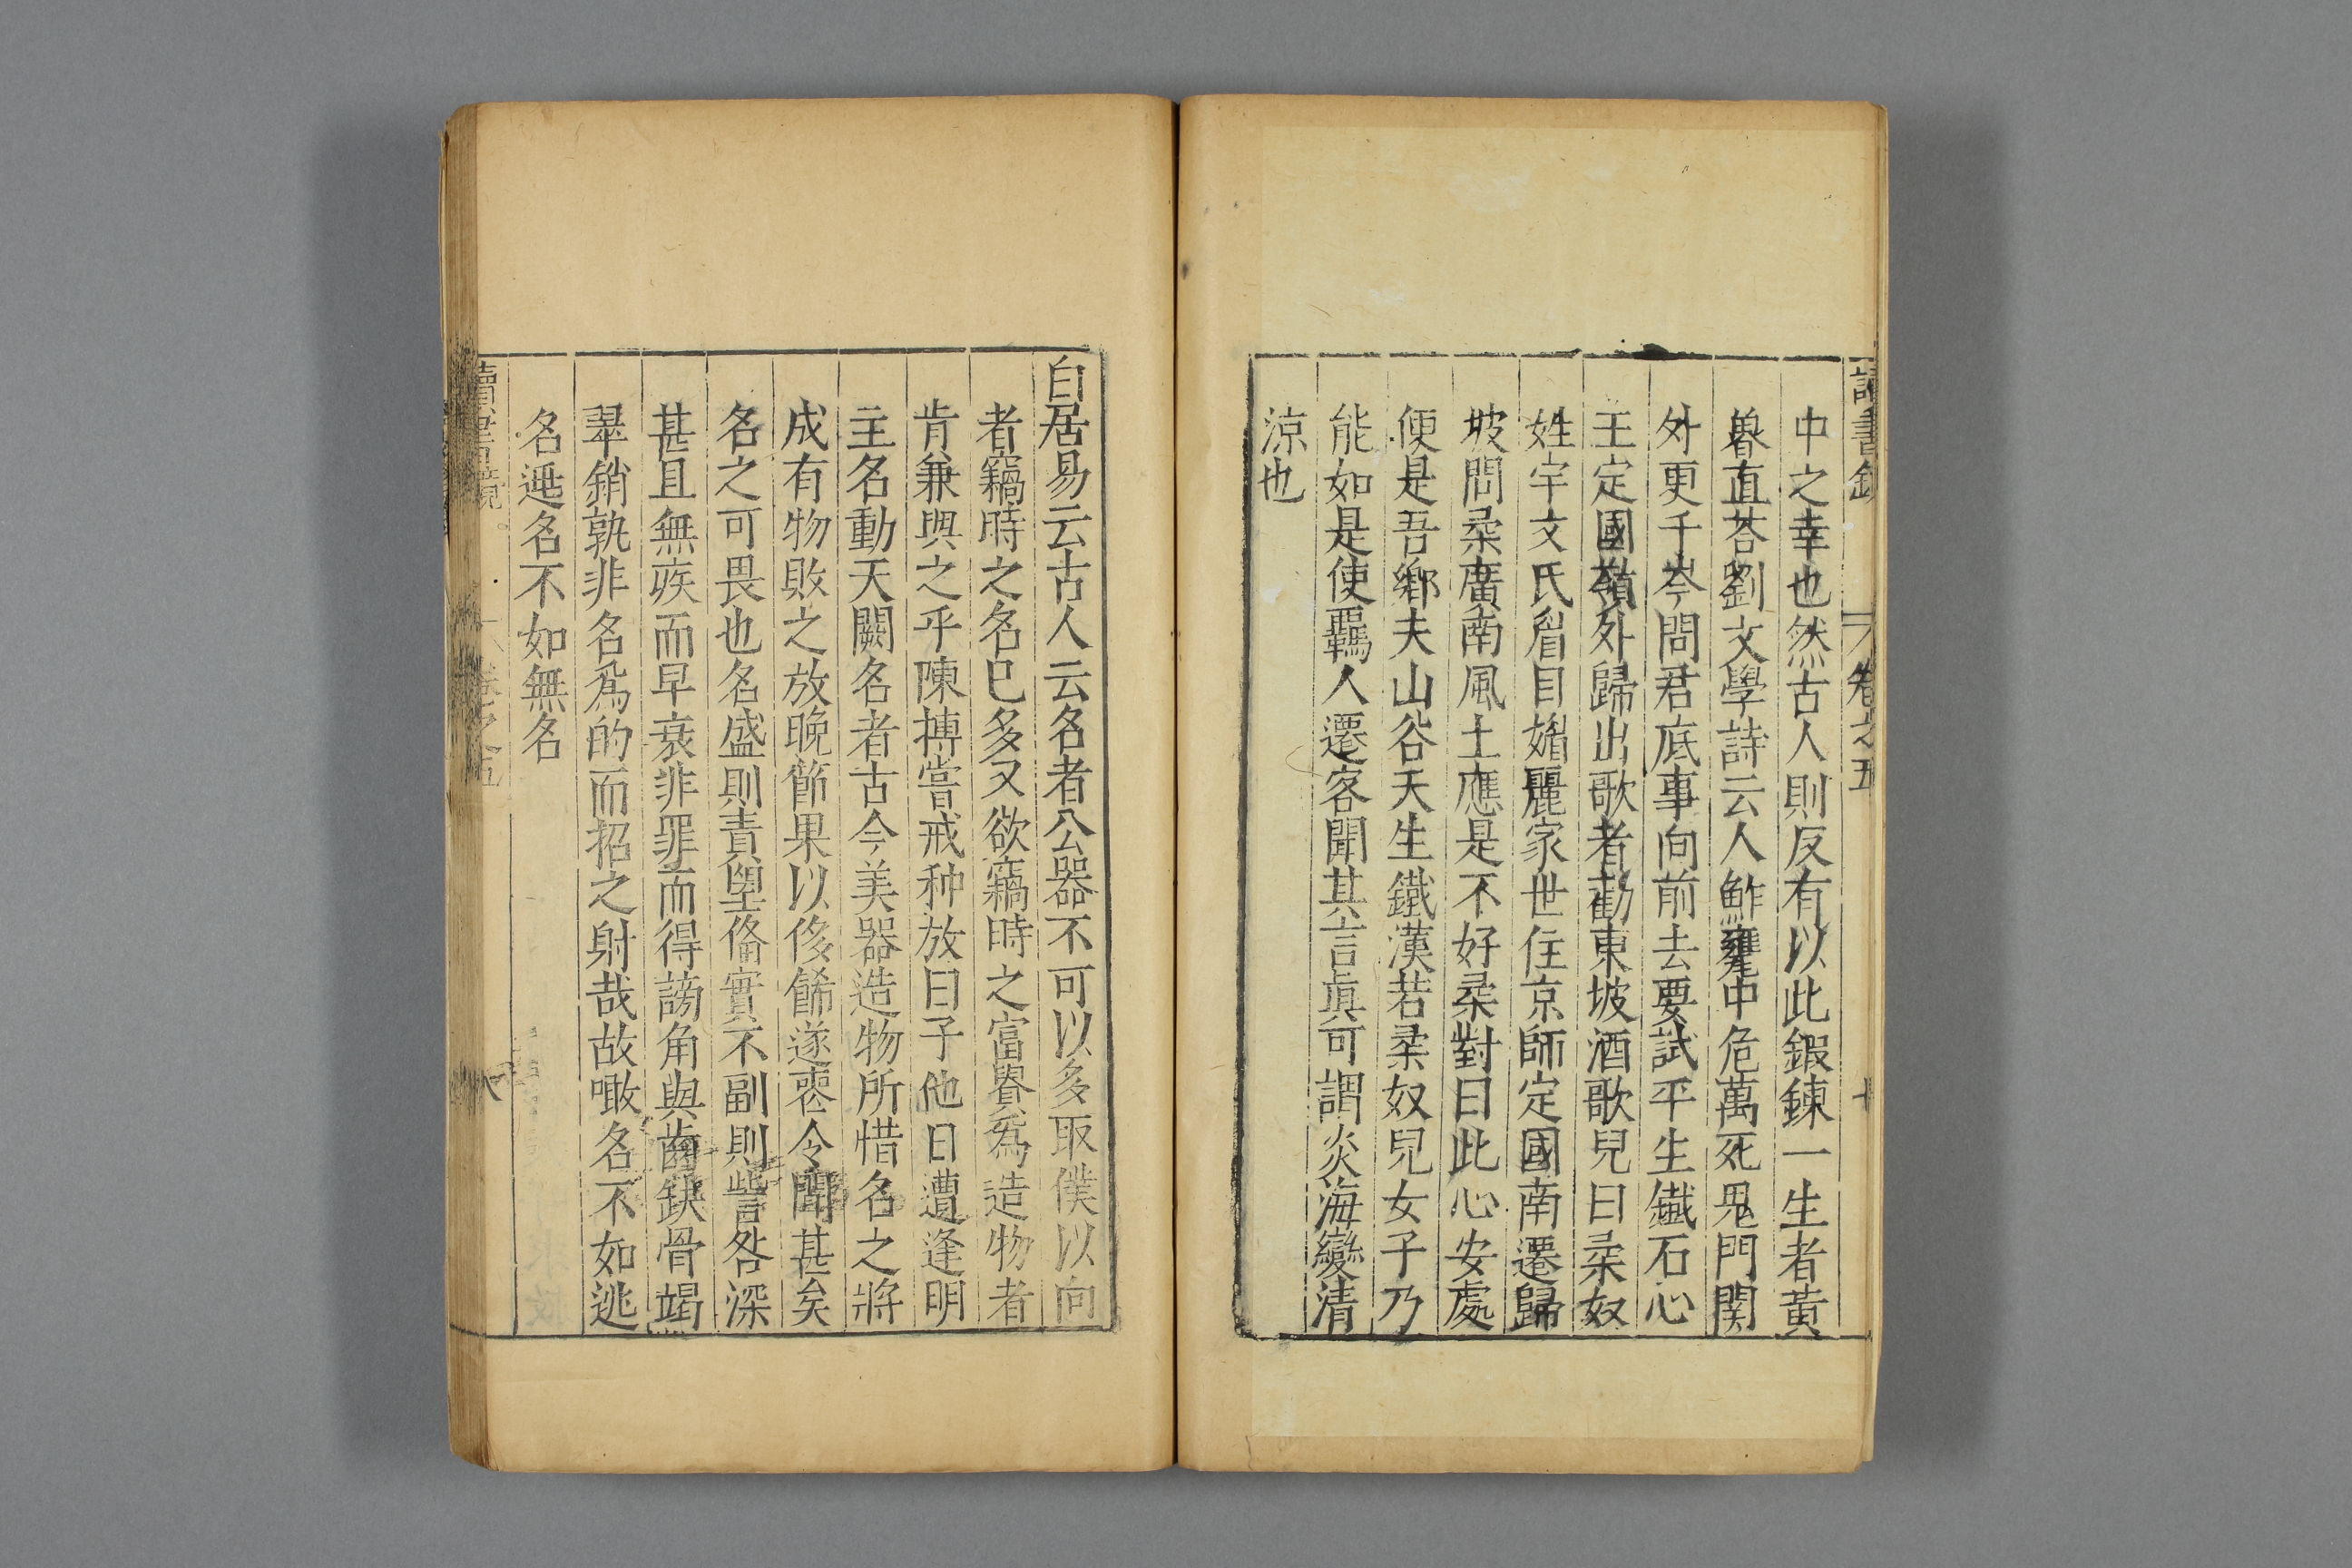 讀書鏡 卷之五 十
中之幸也然古人則反有以此鍜鍊一生者黃
魯直荅劉文學詩云人鮓甕中危萬死鬼門関
外更千岑問君底事向前去要試平生鐵石心
王定國嶺外歸出歌者勸東坡酒歌兒曰柔奴
姓宇文氏眉目媚麗家世住京師定國南遷歸
坡問柔廣南風土應是不好柔對曰此心安處
便是吾鄉夫山谷天生鐵漢若柔奴兒女子乃
能如是使羈人遷客聞其言眞可謂炎海變清
涼也
白居易云古人云名者公器不可以多取僕以向
者竊時之名已多又欲竊時之富貴爲造物者
肯兼與之乎陳摶嘗戒种放曰子他日遭逢明
主名動天闕名者古今美器造物所惜名之將
成有物敗之放晚節果以侈餙遂喪令聞甚矣
名之可畏也名盛則責望俻實不副則訾咎深
甚且無疾而早衰非罪而得謗角與齒缺骨竭
翠銷孰非名爲的而招之射哉故噉名不如逃
名逃名不如無名
讀書鏡 卷之五 八